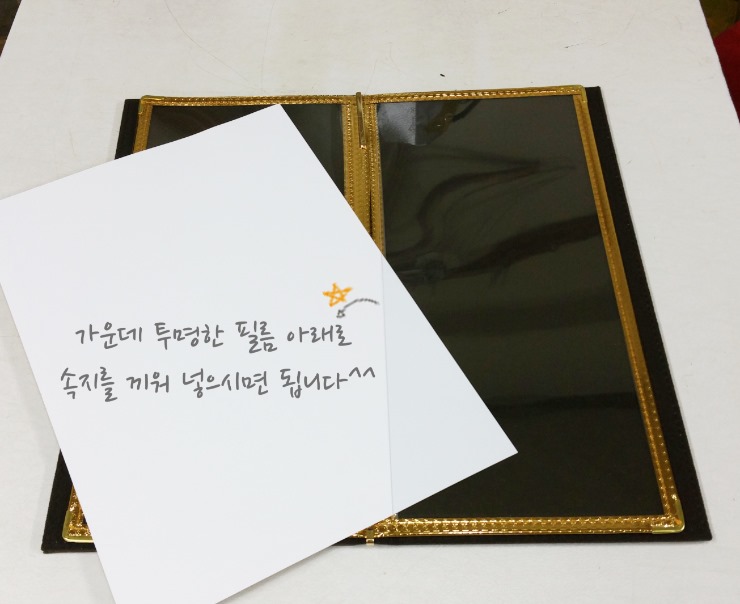 가운데 투명한 필름 아래로
속지를 끼워 넣으시면 됩니다^^